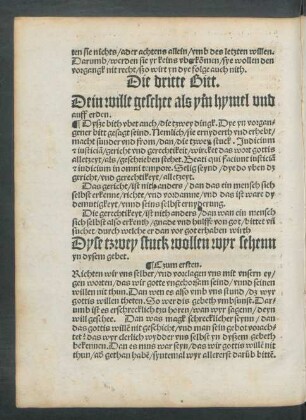 ten sie nichts/ ader achtens allein/ vmb des letzten willen.
Darumb/ werden sie yr keins vbd kömen/ sye wollen den
vorgangk nit recht/ szo wirt yn dye folge auch nith.
Die dritte Bitt.
Dein wille geschee als yñ hymel vnd
auff erden.
¶ Dysze bith vbet auch/ die tzwey dingk. Dye yn vorgan-
gener bitt gesagt seind. Nemlich/ sie ernyderth vnd erhebt/
macht sunder vnd from/ dan/ die tzwey stuck. Judicium
et iusticiã/ gericht vnd gerechtikeit/ wircket das wort gottis
alletzeyt/ als/ geschrieben stehet. Beati qui faciunt iusticiã
et iudicium in omni tempore. Selig seynd/ dye do yben dz
gericht/ vnd gerechtikeyt/ alletzeyt.
Das gericht/ ist nith anders/ dan das ein mensch sich
selbst erkenne/ richte/ vnd vordamne/ vnd das ist ware dy
demutigkeyt/ vnnd seins selbst ernyderung.
Die gerechtikeyt/ ist nith anders/ dan wan ein mensch
sich selbst also erkent/ gnade vnd hulff/ von got/ bittet vñ
suchet/ durch welche er dan vor got erhaben wirth
Dyse tzwey stuck wollen wyr sehenn
yn dysem gebet.
¶ Czum ersten.
Richten wir vns selber/ vnd vorclagen vns mit vnsern ey-
gen worten/ das wir gotte vngehorsam seind/ vnnd seinen
willen nit thun. Dan wen es also vmb vns stund/ dz wyr
gottis willen theten. So wer dis gebeth vmbsunst. Dar-
umb ist es erschrecklich tzu horen/ wan wyr sagenn/ deyn
will geschee. Dan was magk schrecklicher seynn/ dan
das gottis wille nit geschicht/ vnd man sein gebot vorach-
tet/ das wyr clerlich wydder vns selbst yn dyszem gebeth
bekennen. Dan es mus war seyn/ das wir gottis wille nit
thun/ adder gethan habẽ/ syntemal wyr allererst darüb bittẽ.